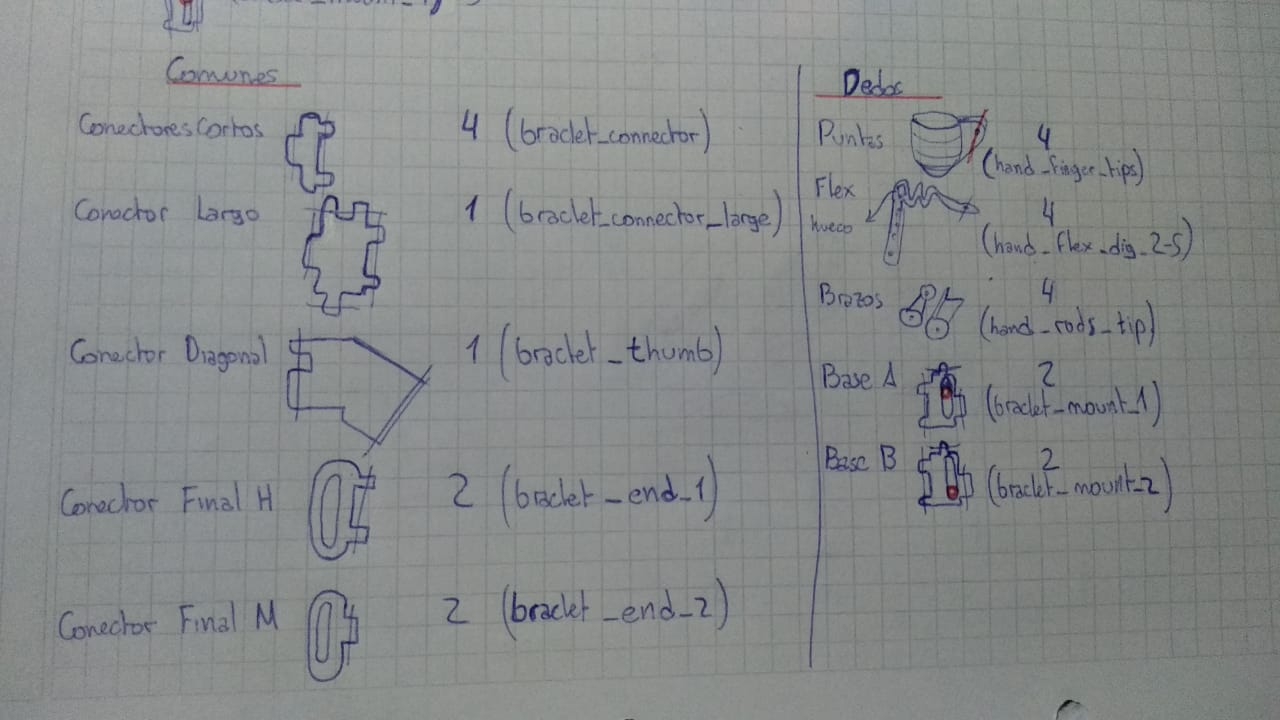 Comunes
Conectores Cortos 4 (braclet_connector)
Conector Largo 1 (braclet_connector_large)
Conector Diagonal 1 (braclet_thumb)
Conector Final H 2 (braclet_end_1)
Conector Final M 2 (braclet_end_2)
Dedos
Puntas 4
(hand_finger_tips)
Flex
hueco 4
(hand_flex_dig_2-5)
Brazos 4
(hand_rods_tip)
Base A 2
(braclet_mount_1)
Base B 2
(braclet_mount_2)